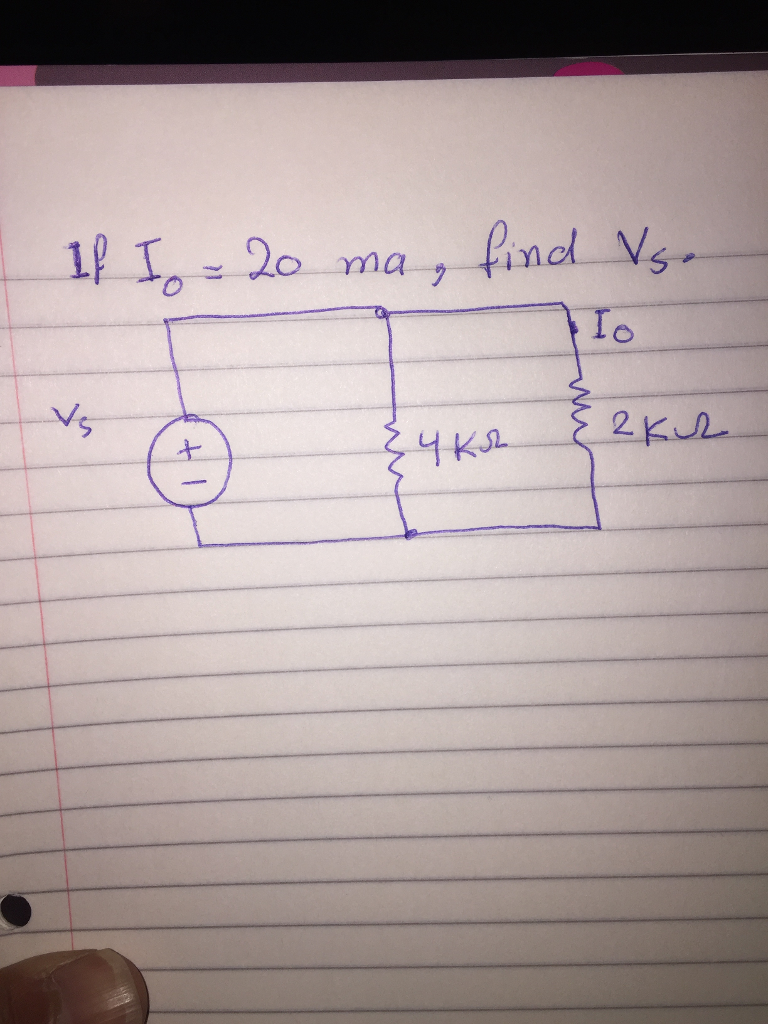 If I₀ = 20 ma, find Vs.
I₀
Vs
+
−
4KΩ
2KΩ